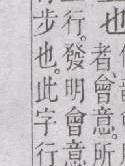 也
者會意。所
行。發明會意
步也。此字行